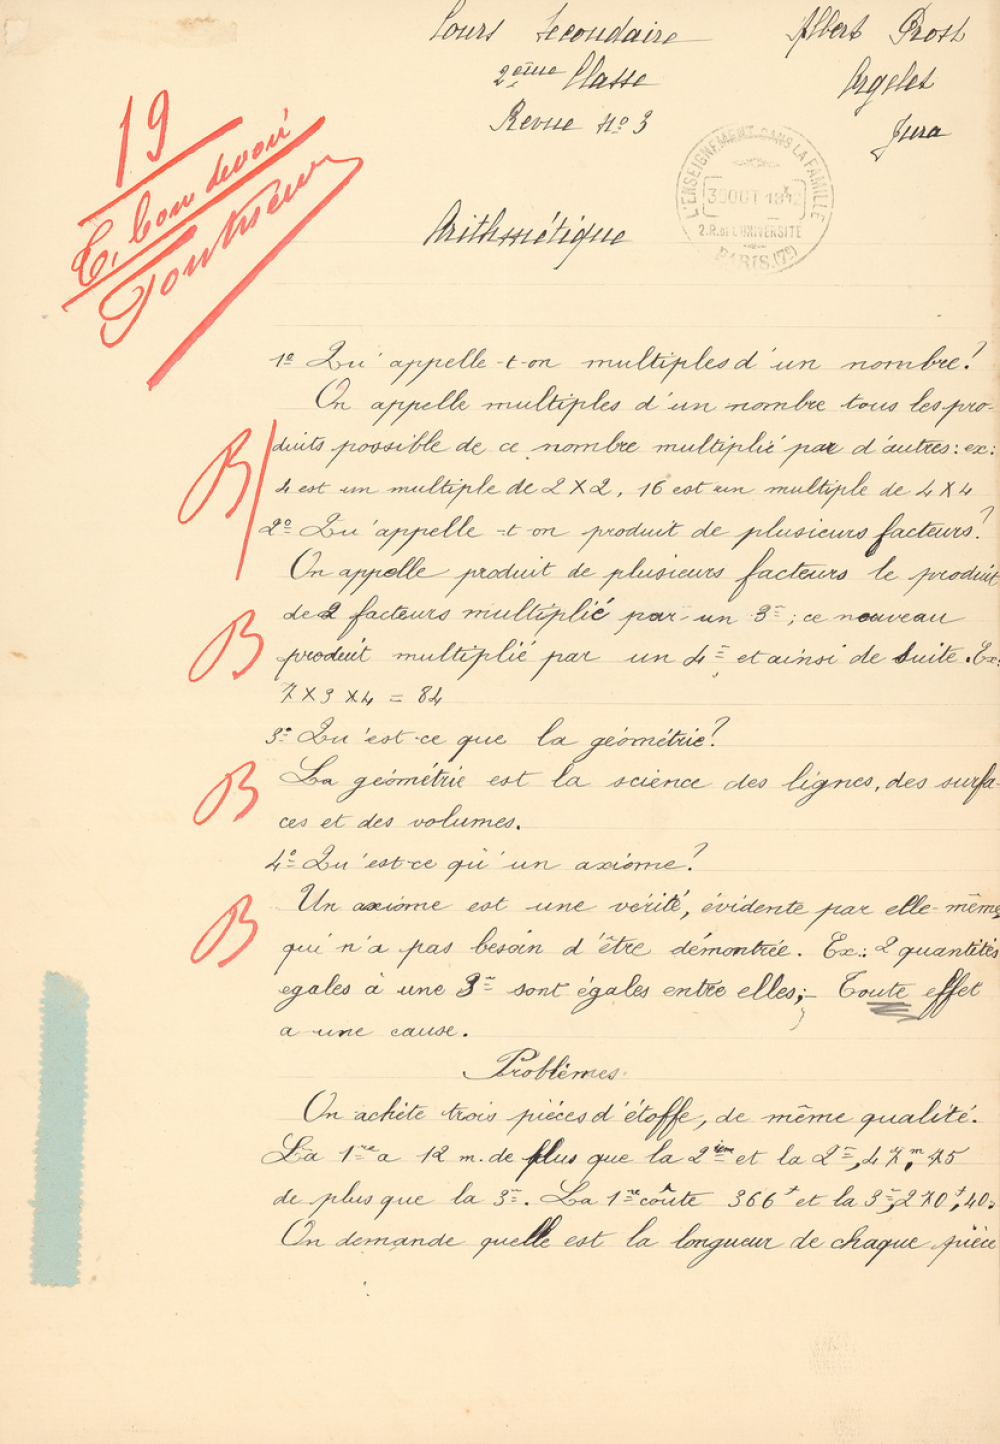 Cours Secondaire
Albert Prost
2ème Classe
Argelet
Revue Nº 3
Jura
19
T. bon devoir
L'ENSEIGNEMENT DANS LA FAMILLE
30 OCT 1912
2.R. DE L'UNIVERSITÉ
PARIS.(7e)
Arithmétique
1º Qu'appelle-t-on multiples d'un nombre?
On appelle multiples d'un nombre tous les pro-
duits possible de ce nombre multiplié par d'autres: ex:
B
4 est un multiple de 2 X 2, 16 est un multiple de 4 X 4
2º Qu'appelle-t-on produit de plusieurs facteurs?
On appelle produit de plusieurs facteurs le produit
de 2 facteurs multiplié par un 3e; ce nouveau
B
produit multiplié par un 4e et ainsi de suite. Ex:
7 X 3 X 4 = 84
3º Qu'est-ce que la géométrie?
La géométrie est la science des lignes, des surfa-
B
ces et des volumes.
4º Qu'est-ce qu'un axiome?
Un axiome est une vérité, évidente par elle-même,
B
qui n'a pas besoin d'être démontrée. Ex: 2 quantités
egales à une 3e sont égales entre elles;- Toute effet
a une cause.
Problèmes.
On achète trois pièces d'étoffe, de même qualité.
La 1re a 12 m. de plus que la 2ème et la 2e, 47m,75
de plus que la 3e. La 1re coûte 366f et la 3e, 270f,40.
On demande quelle est la longueur de chaque pièce